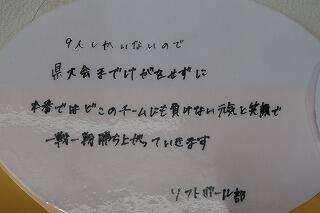 9人しかいないので
県大会までけがをせずに
本番ではどこのチームにも負けない元気と笑顔で
一戦一戦勝ち上がっていきます
ソフトボール部